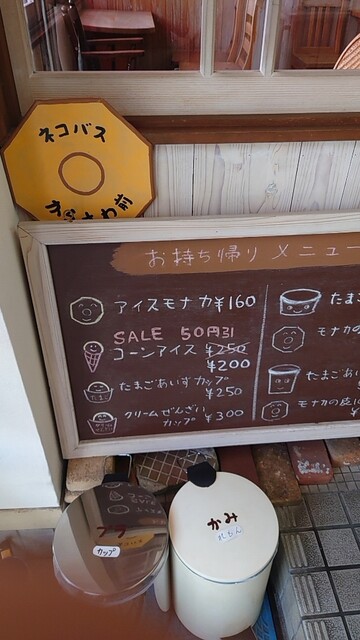 ネコバス
お持ち帰りメニュー
アイスモナカ ¥160
SALE 50円引
コーンアイス ¥250
¥200
たまごあいすカップ
¥250
クリームぜんざい
カップ ¥300
たま
モナカの
たまごあい
モナカの皮に
プラ
カップ
かみ